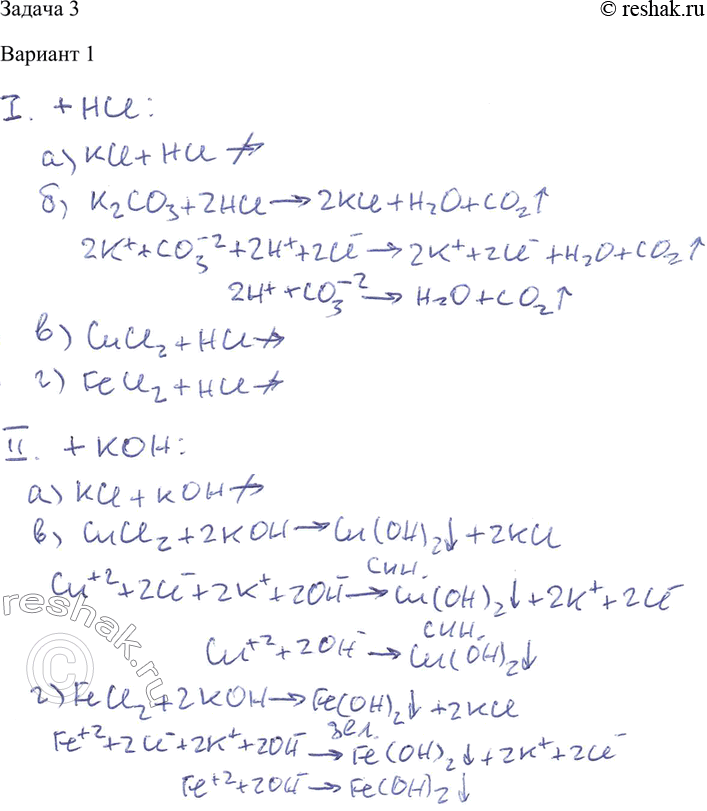 Задача 3
© reshak.ru
Вариант 1
I. + HCl:
а) KCl + HCl ↛
б) K₂CO₃ + 2HCl → 2KCl + H₂O + CO₂↑
2K⁺ + CO₃⁻² + 2H⁺ + 2Cl⁻ → 2K⁺ + 2Cl⁻ + H₂O + CO₂↑
2H⁺ + CO₃⁻² → H₂O + CO₂↑
в) CuCl₂ + HCl ↛
г) FeCl₂ + HCl ↛
II. + KOH:
а) KCl + KOH ↛
в) CuCl₂ + 2KOH → Cu(OH)₂↓ + 2KCl
син.
Cu⁺² + 2Cl⁻ + 2K⁺ + 2OH⁻ → Cu(OH)₂↓ + 2K⁺ + 2Cl⁻
син.
Cu⁺² + 2OH⁻ → Cu(OH)₂↓
г) FeCl₂ + 2KOH → Fe(OH)₂↓ + 2KCl
зел.
Fe⁺² + 2Cl⁻ + 2K⁺ + 2OH⁻ → Fe(OH)₂↓ + 2K⁺ + 2Cl⁻
Fe⁺² + 2OH⁻ → Fe(OH)₂↓
reshak.ru
©